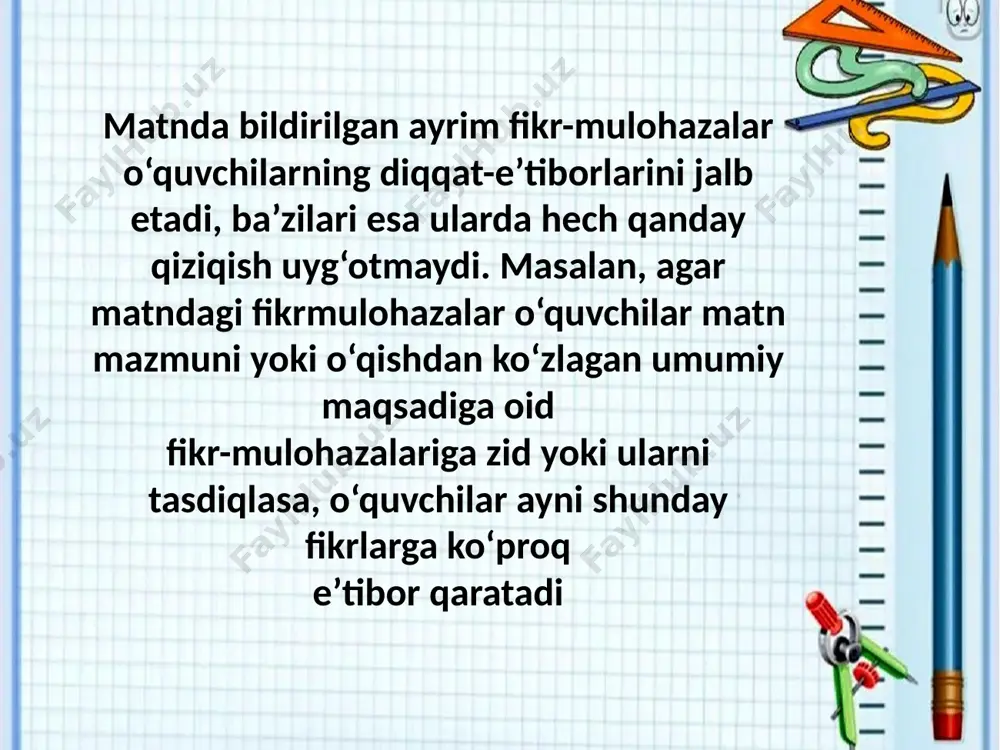 Matnda bildirilgan ayrim fikr-mulohazalar
o‘quvchilarning diqqat-e’tiborlarini jalb
etadi, ba’zilari esa ularda hech qanday
qiziqish uyg‘otmaydi. Masalan, agar
matndagi fikrmulohazalar o‘quvchilar matn
mazmuni yoki o‘qishdan ko‘zlagan umumiy
maqsadiga oid
fikr-mulohazalariga zid yoki ularni
tasdiqlasa, o‘quvchilar ayni shunday
fikrlarga ko‘proq
e’tibor qaratadi